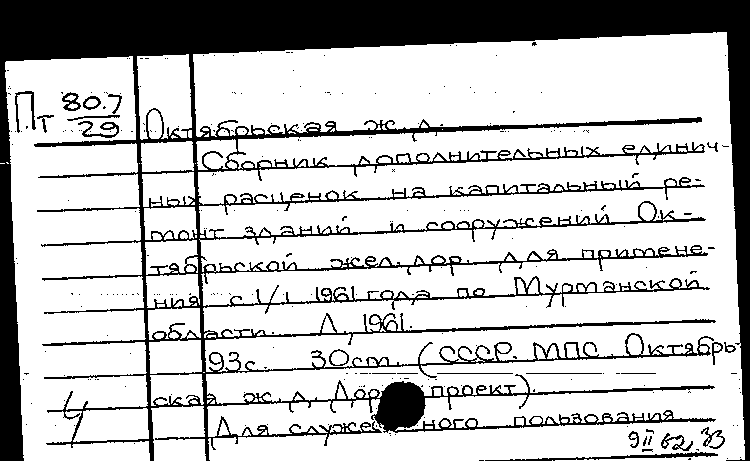 Пт 80.7/29
Октябрьская ж. д.
Сборник дополнительных единич-
ных расценок на капитальный ре-
монт зданий и сооружений Ок-
тябрьской жел. дор. для примене-
ния с 1/I 1961 года по Мурманской
области. Л., 1961.
93с. 30см. (СССР. МПС. Октябрь-
ская ж. д. Дор проект).
Для служе ного пользования
9 II 62